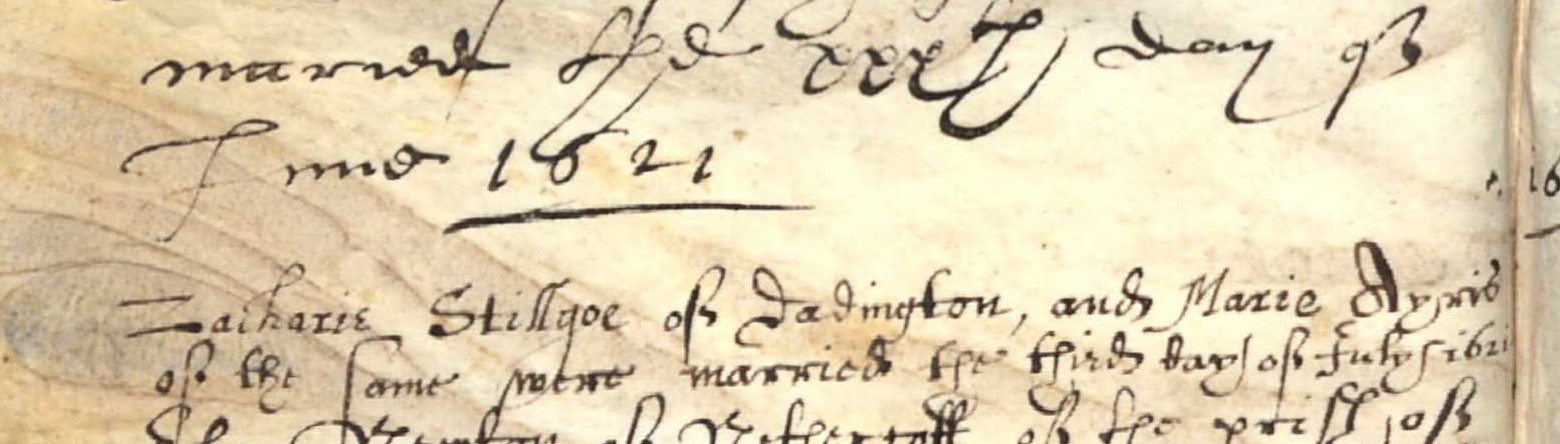 maried the xxxth day of
June 1621
Zacharie Stillgoe of Dadington, and Marie Ayris
of the same were married the third day of July 1621
Newton of Nethercott of the prish of